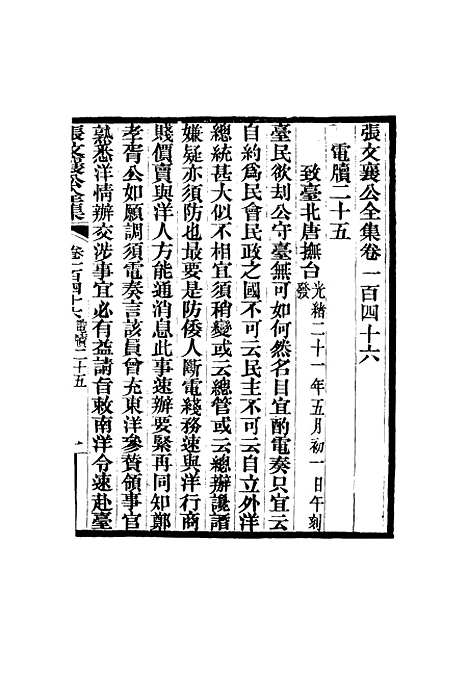 張文襄公全集卷一百四十六
電牘二十五
致臺北唐撫台光緒二十一年五月初一日午刻發
臺民欲劫公守臺無可如何然名目宜酌電奏只宜云
自約爲民會民政之國不可云民主不可云自立外洋
總統甚大似不相宜須稍變或云總管或云總辦讒譖
嫌疑亦須防也最要是防倭人斷電綫務速與洋行商
賤價賣與洋人方能通消息此事速辦要緊再同知鄭
孝胥公如願調須電奏言該員曾充東洋參贊領事官
熟悉洋情辦交涉事宜必有益請旨敕南洋令速赴臺
張文襄公全集 卷一百四十六 電牘二十五 一